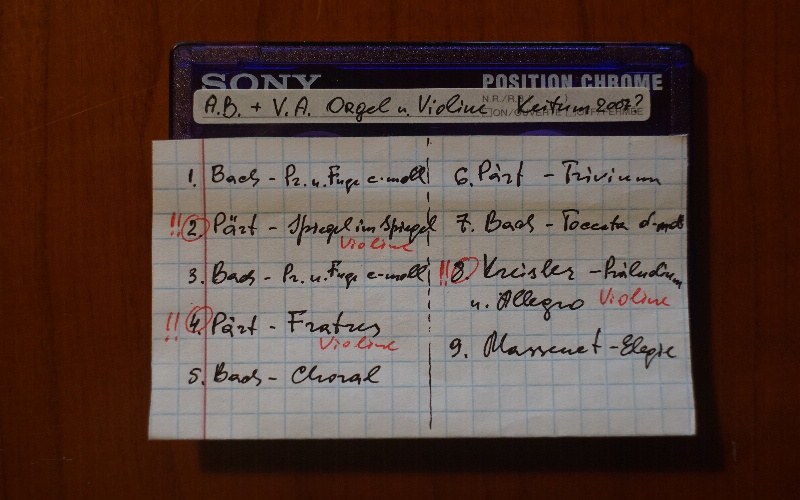 SONY
POSITION CHROME
N.R./R.B.
A.B. + V.A. Orgel u. Violine Keitum 2007?
1. Bach - Pr. u. Fuge c-moll
!! 2 Pärt - Spiegel im Spiegel
Violine
3. Bach - Pr. u. Fuge e-moll
!! 4. Pärt - Fratres
Violine
5. Bach - Choral
6. Pärt - Trivium
7. Bach - Toccata d-moll
!! 8 Kreisler - Präludium
u. Allegro Violine
9. Massenet - Elegie